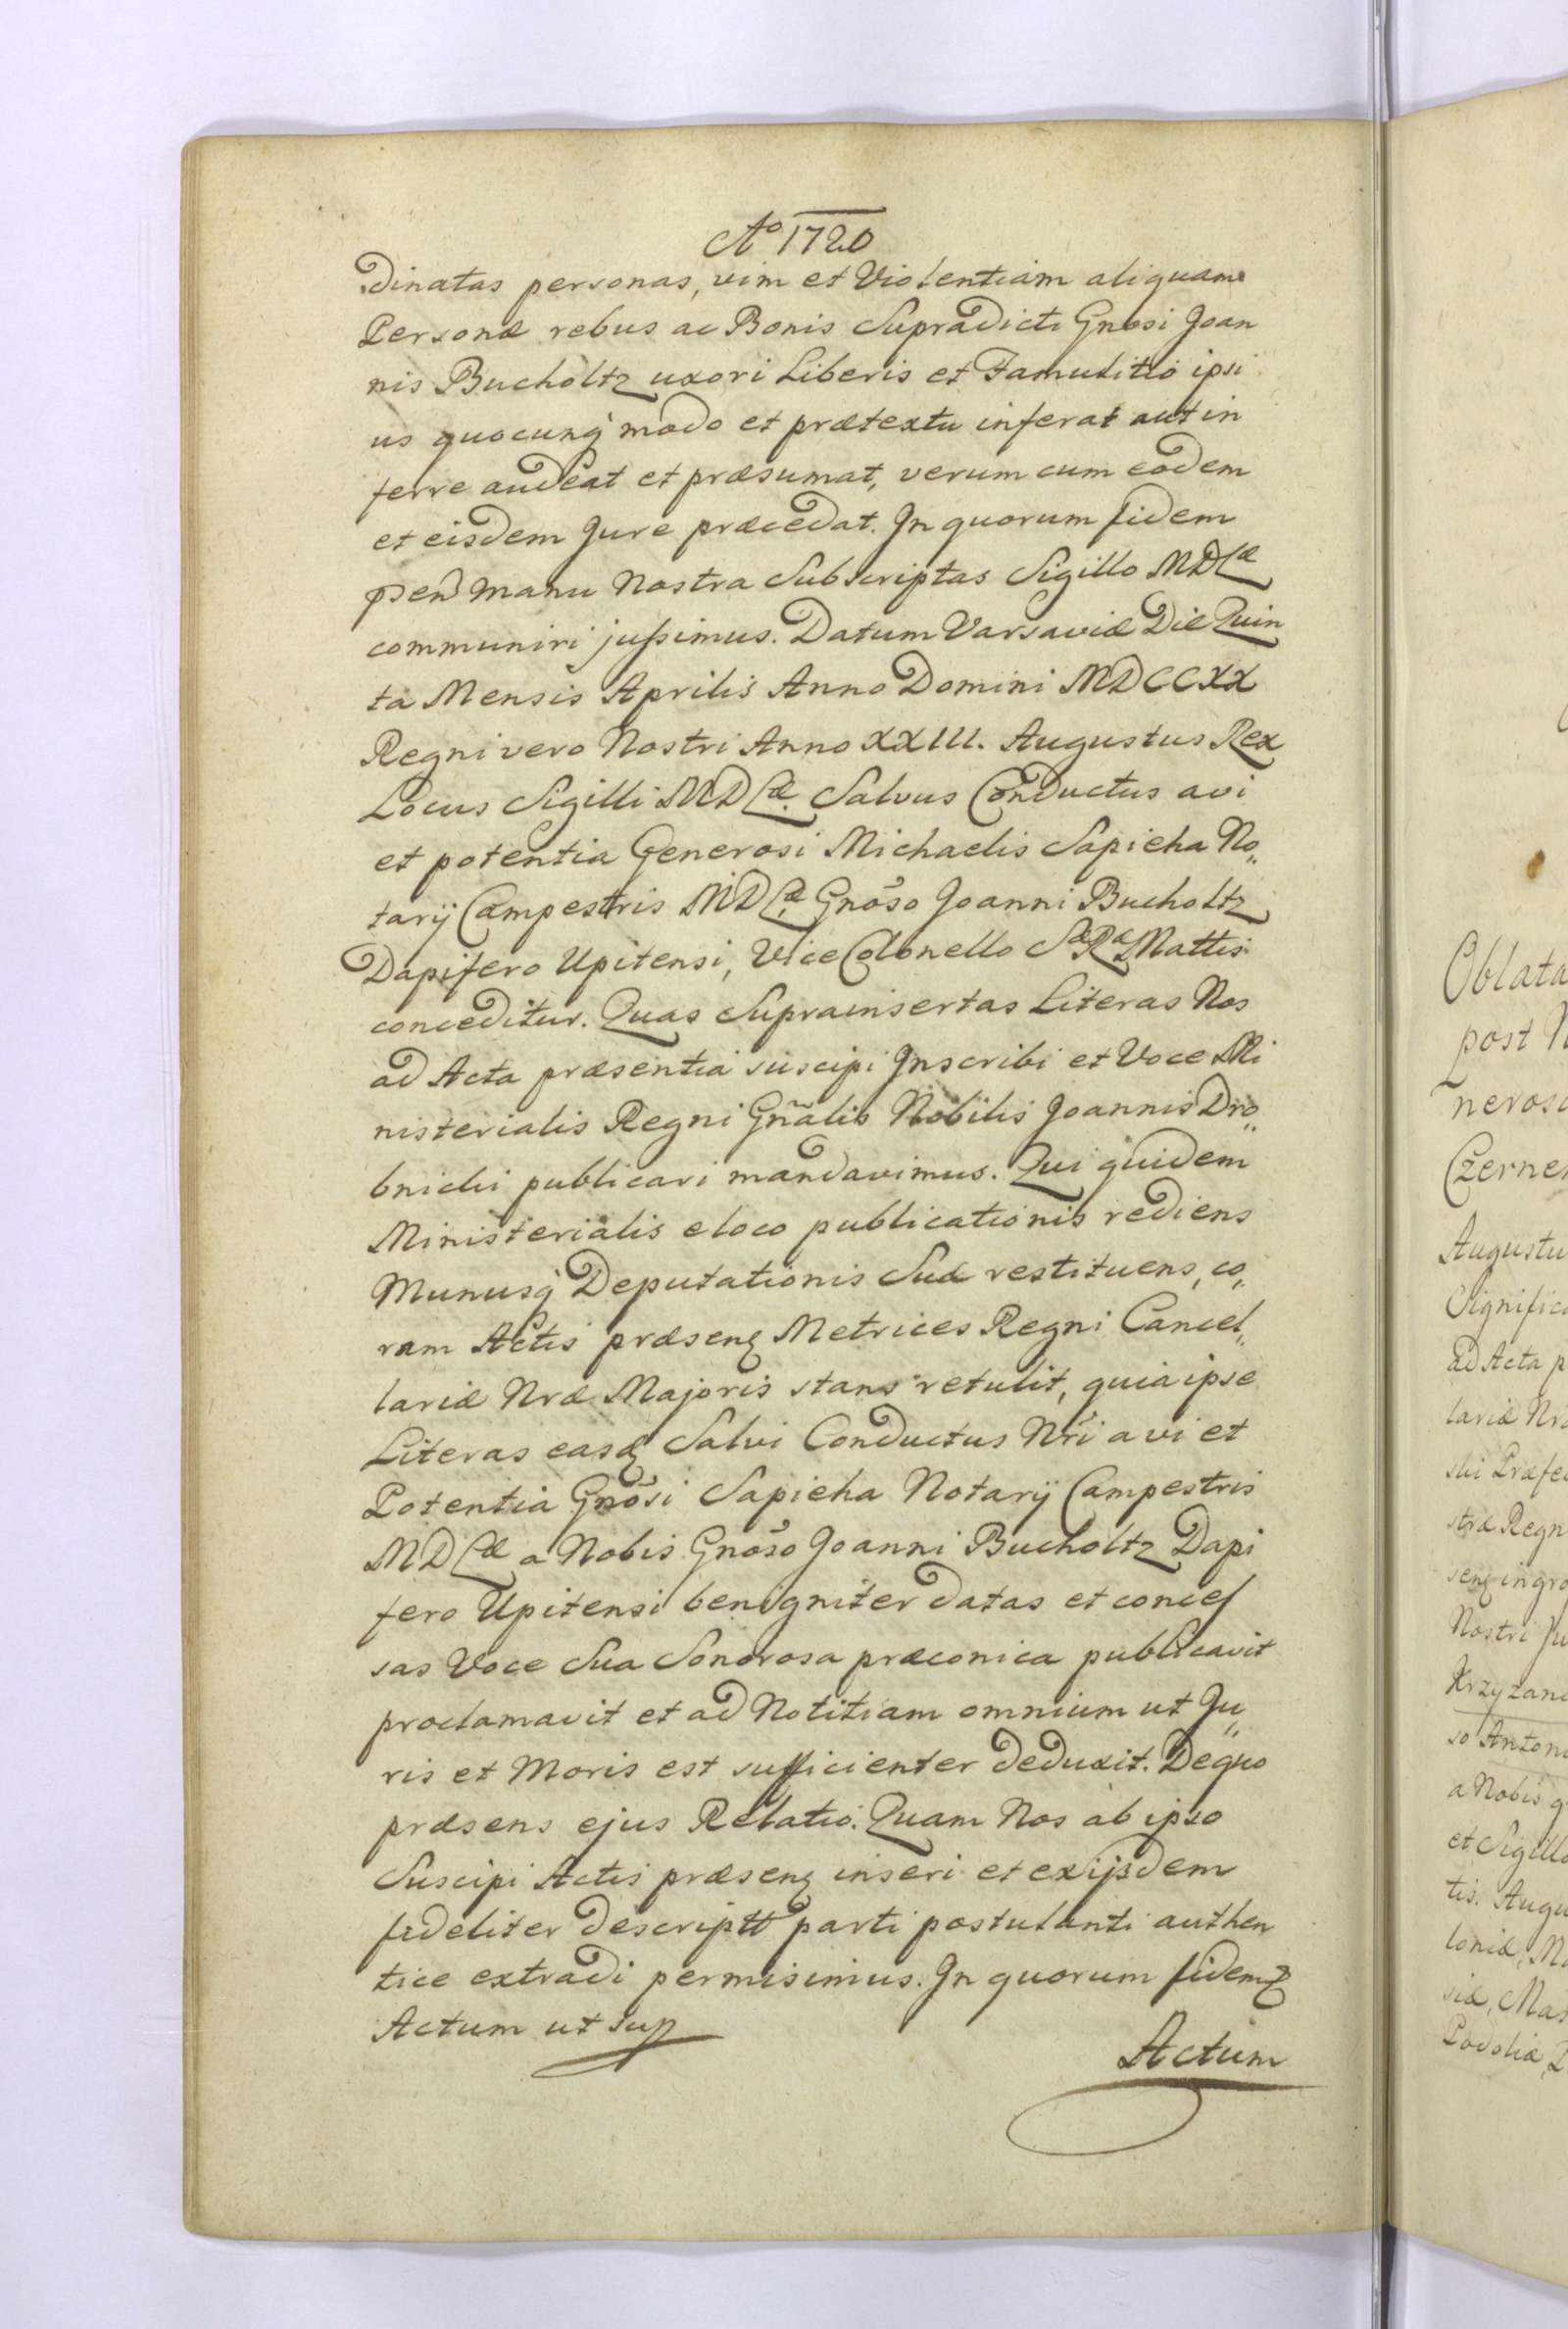 Aº 1720
dinatas personas, vim et Violentiam aliquam
Personæ rebus ac Bonis Supradicti Gnosi Joan
nis Bucholtz uxori Liberis et Famulitio ipsi
us quocunq modo et prætextu inferat aut in
ferre audeat et præsumat, verum cum eodem
et eisdem Jure præcedat. In quorum fidem
pñ manu Nostra Subscriptas Sigillo MDLæ
communiri jussimus. Datum Varsaviæ Die Quin
ta Mensis Aprilis Anno Domini MDCCXX
Regni vero Nostri Anno XXIII. Augustus Rex
Locus Sigilli MDLæ. Salvus Conductus a vi
et potentia Generosi Michaelis Sapieha No„
tarij Campestris MDLæ Gnoso Joanni Bucholtz
Dapifero Upitensi, Vice Colonello SæRæ Mattis
conceditur. Quas Suprainsertas Literas Nos
ad Acta præsentia suscipi Inscribi et Voce Mi
nisterialis Regni Gñalis Nobilis Joannis Dro„
bnicki publicari mandavimus. Qui quidem
Ministerialis e loco publicationis rediens
Munusq Deputationis Suæ restituens, co„
ram Actis præsenz Metrices Regni Cancel„
lariæ Nræ Majoris stans retulit, quia ipse
Literas easd Salvi Conductus Nri a vi et
Potentia Gnosi Sapieha Notarij Campestris
MDLæ a Nobis Gnoso Joanni Bucholtz Dapi
fero Upitensi benigniter datas et conces
sas Voce Sua Sonorosa præconica publicavit
proclamavit et ad Notitiam omnium ut Ju„
ris et Moris est sufficienter deduxit. De quo
præsens ejus Relatio. Quam Nos ab ipso
Suscipi Actis præsenz inseri et ex ijsdem
fideliter descriptt parti postulanti authen
tice extradi permisimus. In quorum fidem
Actum ut sup
Actum
Oblata
post
neros
Czerne
Augustu
Signific
ad Acta p
lariæ Nr
ski Præfe
stræ Regn
senz ingro
Nostri Ju
Krzyzan
so Anton
a Nobis q
et Sigillo
tis. Augu
loniæ, M
siæ, Mas
Podoliæ,